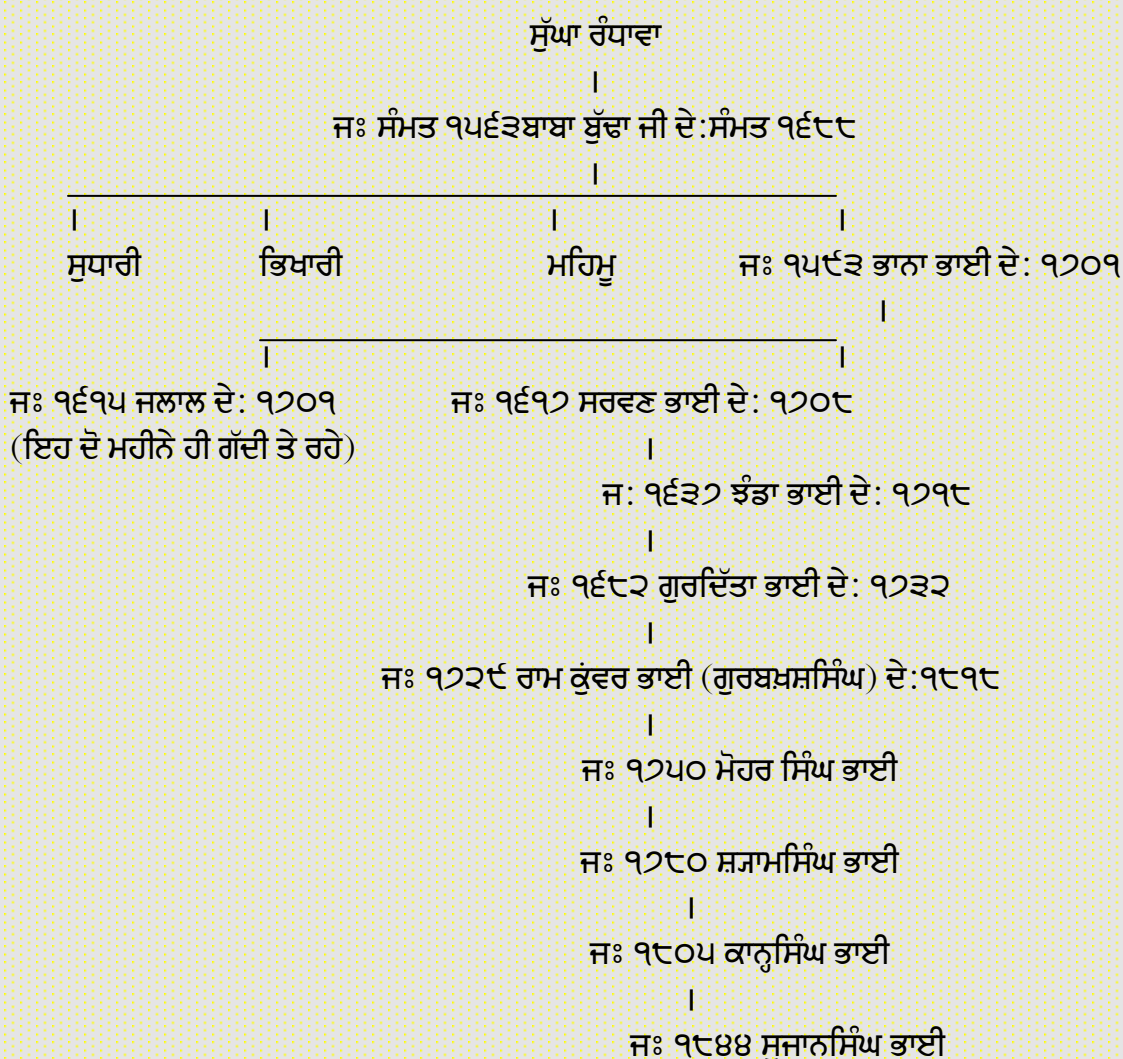 ਸੁੱਘਾ ਰੰਧਾਵਾ
ਜਃ ਸੰਮਤ ੧੫੬੩ਬਾਬਾ ਬੁੱਢਾ ਜੀ ਦੇ:ਸੰਮਤ ੧੬੮੮
ਸੁਧਾਰੀ ਭਿਖਾਰੀ ਮਹਿਮੂ ਜਃ ੧੫੯੩ ਭਾਨਾ ਭਾਈ ਦੇ: ੧੭੦੧
ਜਃ ੧੬੧੫ ਜਲਾਲ ਦੇ: ੧੭੦੧ ਜਃ ੧੬੧੭ ਸਰਵਣ ਭਾਈ ਦੇ: ੧੭੦੮
(ਇਹ ਦੋ ਮਹੀਨੇ ਹੀ ਗੱਦੀ ਤੇ ਰਹੇ)
ਜ: ੧੬੩੭ ਝੰਡਾ ਭਾਈ ਦੇ: ੧੭੧੮
ਜਃ ੧੬੮੨ ਗੁਰਦਿੱਤਾ ਭਾਈ ਦੇ: ੧੭੩੨
ਜਃ ੧੭੨੯ ਰਾਮ ਕੁਂਵਰ ਭਾਈ (ਗੁਰਬਖ਼ਸ਼ਸਿੰਘ) ਦੇ:੧੮੧੮
ਜਃ ੧੭੫੦ ਮੋਹਰ ਸਿੰਘ ਭਾਈ
ਜਃ ੧੭੮੦ ਸ਼੍ਯਾਮਸਿੰਘ ਭਾਈ
ਜਃ ੧੮੦੫ ਕਾਨ੍ਹਸਿੰਘ ਭਾਈ
ਜਃ ੧੮੪੪ ਸੁਜਾਨਸਿੰਘ ਭਾਈ